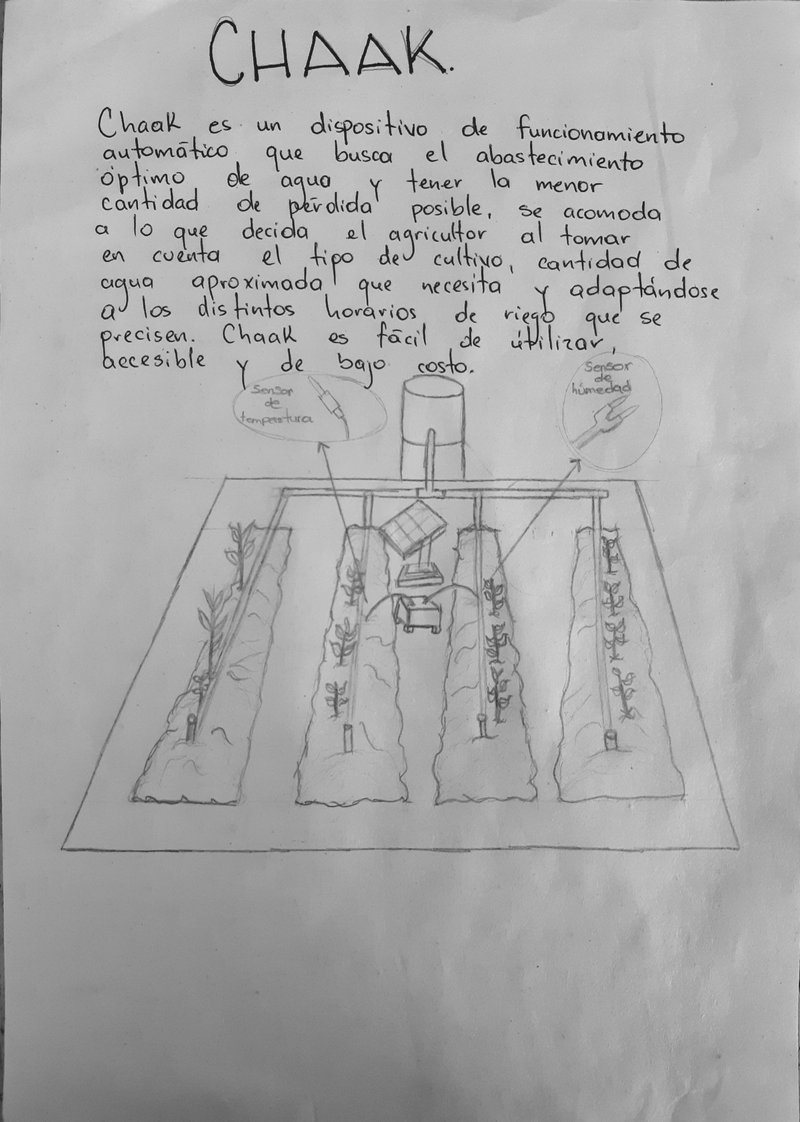 CHAAK.
Chaak es un dispositivo de funcionamiento
automático que busca el abastecimiento
óptimo de agua y tener la menor
cantidad de pérdida posible, se acomoda
a lo que decida el agricultor al tomar
en cuenta el tipo de cultivo, cantidad de
agua aproximada que necesita y adaptándose
a los distintos horarios de riego que se
precisen. Chaak es fácil de útilizar,
accesible y de bajo costo.
Sensor
de
temperatura
Sensor
de
húmedad